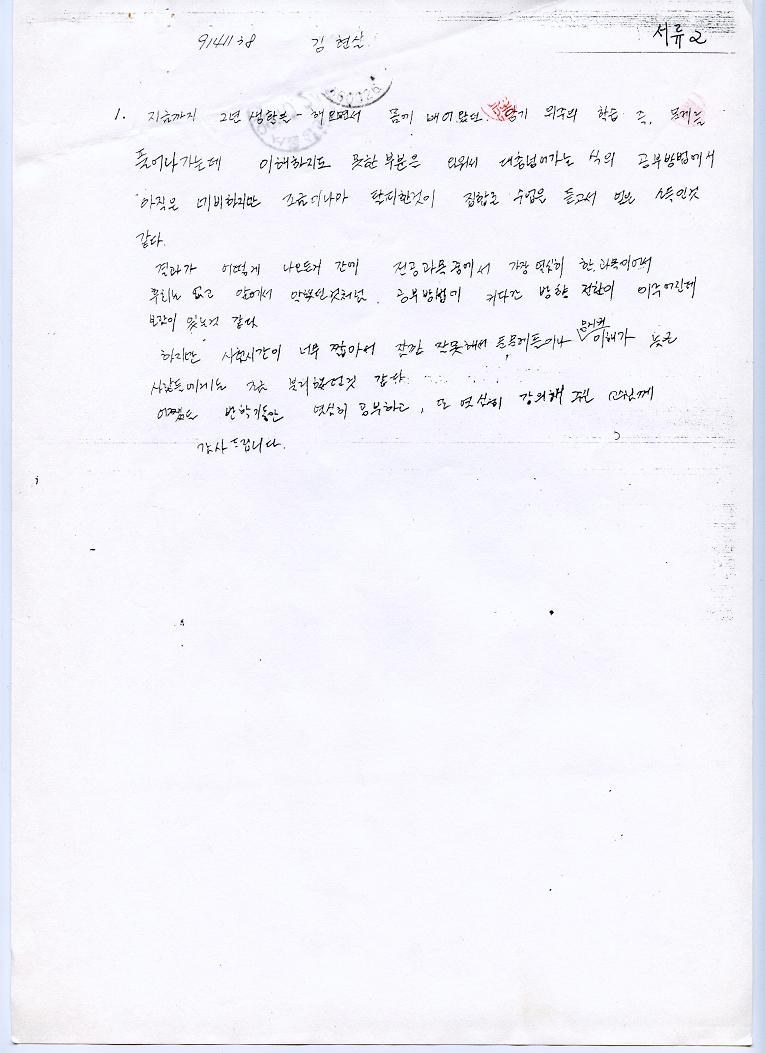 9141138 김현상 서류 2
1. 지금까지 2년 생활을 해오면서 몸에 배어 왔던 암기 위주의 학습 즉, 문제를
풀어나가는데 이해하지도 못한 부분은 외워서 대충넘어가는 식의 공부방법에서
아직은 미비하지만 조금이나마 탈피한것이 집합론 수업을 듣고서 얻은 소득인것
같다.
결과가 어떻게 나오든지 간에 전공과목중에서 가장 열심히 한 과목이어서
후회는 없고 앞에서 말했던것처럼 공부방법에 커다란 방향 전환이 이루어진데
보람이 있는것 같다
하지만 시험시간이 너무 짧아서 잘못해서 이해가 늦은
사람들에게는 조금 불리했던것 같다.
어쨌든 반학기동안 열심히 공부하고, 또 열심히 강의해 주신 교수님께
감사드립니다.